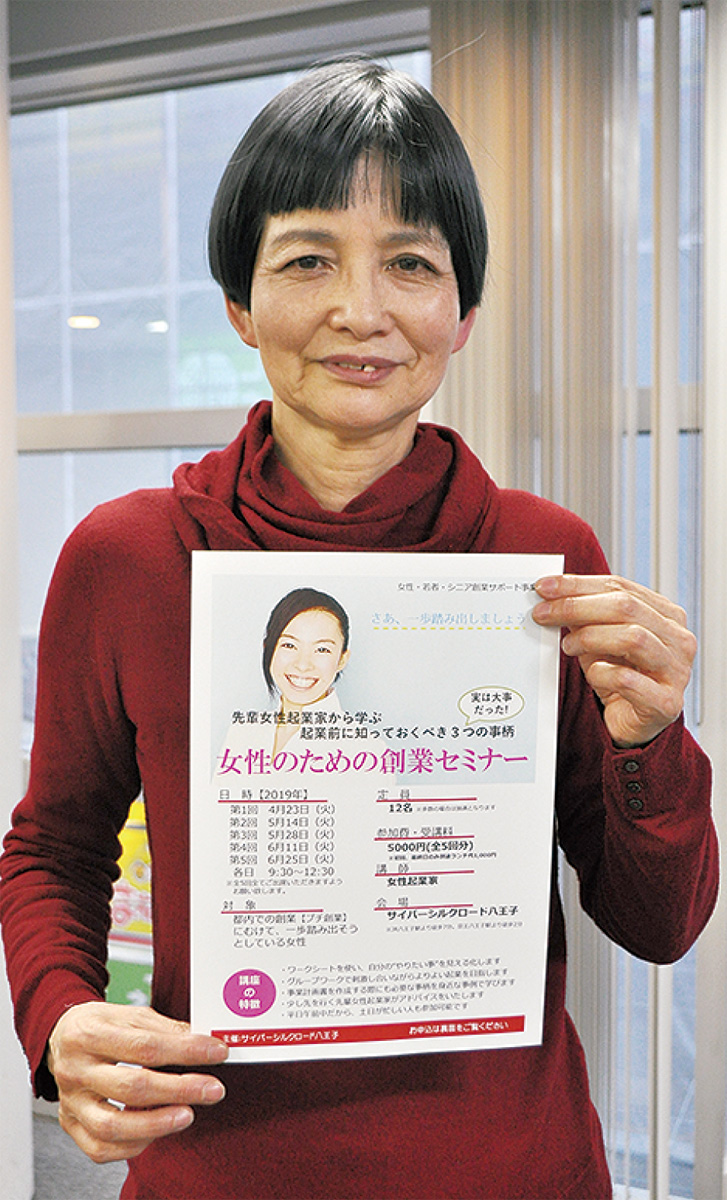 女性・若者・シニア創業サポート事業
さあ、一歩踏み出しましょう
実は大事
だった!
先輩女性起業家から学ぶ
起業前に知っておくべき3つの事柄
女性のための創業セミナー
日　時【2019年】
第1回　4月23日（火）
第2回　5月14日（火）
第3回　5月28日（火）
第4回　6月11日（火）
第5回　6月25日（火）
各日　9:30～12:30
※全5回全てご出席いただきますよう
お願い致します。
対　象
都内での創業【プチ創業】
にむけて、一歩踏み出そう
としている女性
定　員
12名 ※多数の場合は抽選となります
参加費・受講料
5000円(全5回分)
※初回、最終日のみ別途ランチ代1,000円
講　師
女性起業家
会　場
サイバーシルクロード八王子
講座
の
特徴
・ワークシートを使い、自分の“やりたい事”を見える化します
・グループワークで刺激し合いながらよりよい起業を目指します
・事業計画書を作成する際にも必要な事柄を身近な事例で学びます
・少し先を行く先輩女性起業家がアドバイスをいたします
・平日午前中だから、土日が忙しい人も参加可能です
主催:サイバーシルクロード八王子
お申込は裏面をご覧ください